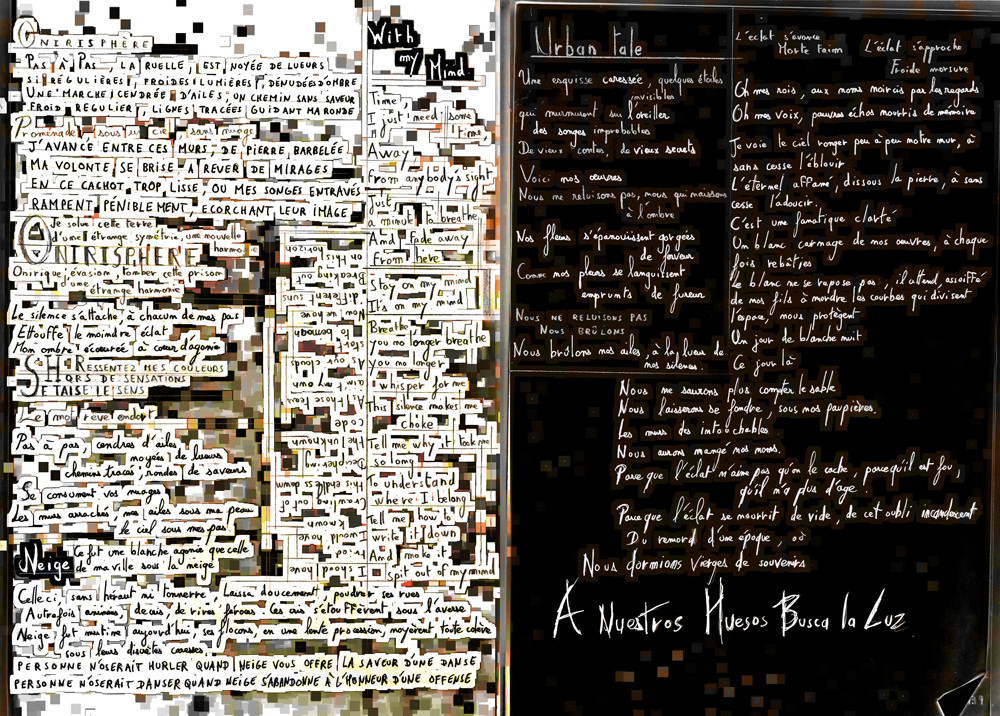 ONIRISPHÈRE
PAS À PAS, LA RUELLE, EST NOYÉE DE LUEURS
SI RÉGULIÈRES, FROIDES LUMIÈRES, DÉNUDÉES D'OMBRE
UNE MARCHE CENDRÉE D'AILES, UN CHEMIN SANS SAVEUR
FROID REGULIER, LIGNES TRACÉES GUIDANT MA RONDE
Promenade sous un ciel sans nuage
J'AVANCE ENTRE CES MURS, DE PIERRE, BARBELÉE
MA VOLONTE SE BRISE A RÊVER DE MIRAGES
EN CE CACHOT, TROP LISSE, OU MES SONGES ENTRAVÉS
RAMPENT PÉNIBLEMENT, ECORCHANT LEUR IMAGE
Ô Je salue cette terre
d'une étrange symétrie, une nouvelle
harmonie
ONIRISPHÈRE
Onirique évasion, tomber cette prison
d'une
étrange harmonie
Le silence s'attache, à chacun de mes pas
Etouffe le moindre éclat
Mon ombre écoeurée à coeur d'agonie
SPHÈRE
RESSENTEZ MES COULEURS
HORS DE SENSATIONS
ETAIS LE SENS
Le mal rêve endort
Pas à pas cendres d'ailes
noyées de lueurs
chemins traces, rondes de saveurs
Se consument vos nuages
Les murs arrachés mes ailes sous ma peau
le ciel sous mes pas
Neige
Ce fut une blanche agonie que celle
de ma ville sous la neige
Celle ci, sans héraut ni tonnerre Laissa doucement poudrer ses rues
Autrefois animées, de cris de rires féroces. Ces cris s'étouffèrent, sous l'averse
Neige fut mutine aujourd'hui, ses flocons, en une lente procession, noyèrent toute colère
sous leurs discrètes caresses
PERSONNE N'OSERAIT HURLER QUAND NEIGE VOUS OFFRE LA SAVEUR D'UNE DANSE
PERSONNE N'OSERAIT DANSER QUAND NEIGE S'ABANDONNE À L'HONNEUR D'UNE OFFENSE
With
my Mind
Time,
I just need some
time
Away
From anybody's sight
Just
a minute to breathe
And fade away
From here
Stay on my mind
It's on my mind
Breathe
you no longer breathe
you no longer
whisper for me
This silence makes me
choke
Tell me why it took me
so long
To understand
where I belong
Tell me how to
write it down
And make it
spit out of my mind
I should have
I would have
known
Crawling out of
this endless dawn
Deciphering
the unknown
code
All those fears
As our clouds
run
to beneath
Now we have
different suns
Breaking out
on this
horizon
Urban tale
Une esquisse caressée, quelques étoiles
invisibles
qui murmurent sur l'oreiller
des songes improbables
De vieux contes, de vieux secrets
Voici nos oeuvres
Nous ne reluisons pas, nous qui naissons
à l'ombre
Nos fleurs s'épanouissent gorgées
de ferveur
Comme nos pleurs se languissent
emprunts de fureur
NOUS NE RELUISONS PAS
NOUS BRÛLONS
Nous brûlons nos ailes, à la lueur de
nos silences.
L'éclat s'avance
Morte faim
L'éclat s'approche
Froide morsure
Oh mes rois, aux noms noircis par les regards
Oh mes voix, pauvres échos nourris de mémoire
Je vois le ciel ronger peu à peu notre mur, à
sans cesse l'éblouir
L'éternel affamé, dissous la pierre, à sans
cesse l'adoucir.
C'est une fanatique clarté
Un blanc carnage de nos oeuvres, à chaque
fois rebâties
Le blanc ne se repose pas, il attend, assoiffé
de nos fils à mordre les courbes qui divisent
l'época, nous protègent
Un jour de blanche nuit
Ce jour là
Nous ne saurons plus compter le sable
Nous laisserons se fondre, sous nos paupières.
Les murs des intouchables
Nous aurons mangé nos noms.
Parce que l'éclat n'aime pas qu'on le cache, parcequ'il est fou,
qu'il n'a plus d'âge
Parce que l'éclat se nourrit de vide, de cet oubli incandescent
Du remord d'une époque, où
Nous dormions Vierges de souvenirs
A NUESTROS HUESOS BUSCA la LUZ